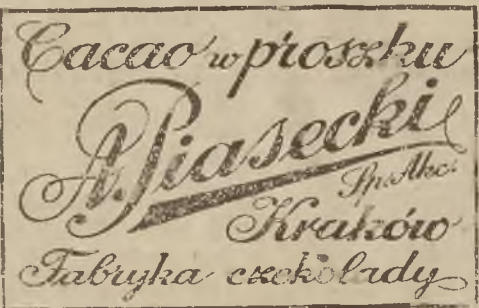 Cacao w proszku
A. Piasecki
Sp. Akc.
Kraków
Fabryka czekolady